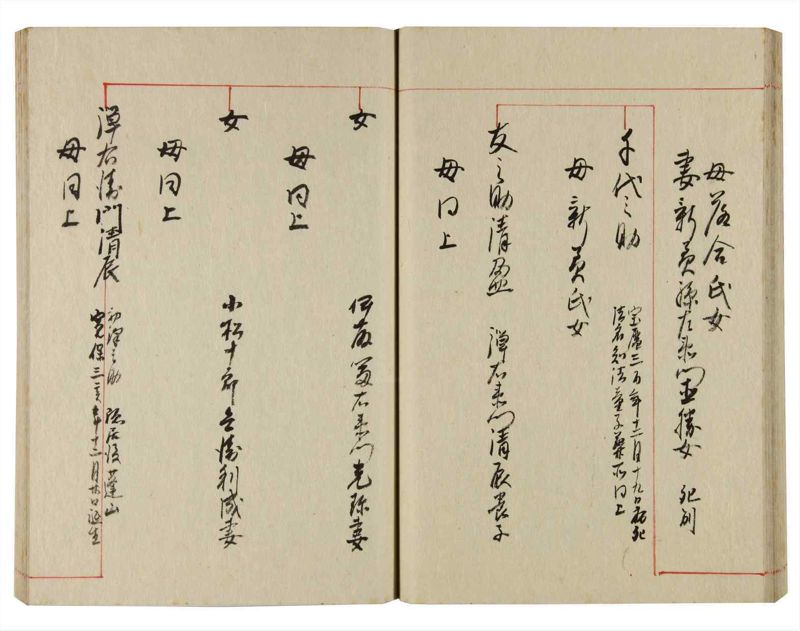 母落合氏女
妻新貝孫左衛門豊勝女 死別
千代之助
宝暦三酉年十二月十九日病死
法名知法童子葬所同上
母新貝氏女
友之助清盈 弾右衛門清辰養子
母同上
女 伊藤 右衛門光弥妻
母同上
女 小松十郎兵衛利成妻
母同上
弾右衛門清辰
初弾之助 隠居後蓬山
寛保三亥年十二月廿八日誕生
母同上